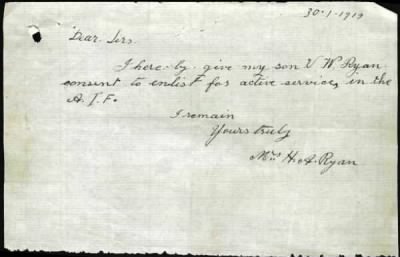 30-1-1919
Dear Sirs
I here-by give my son V W. Ryan
consent to enlist for active service, in the
A. I. F.
I remain
Yours truly
Mrs H. A. Ryan